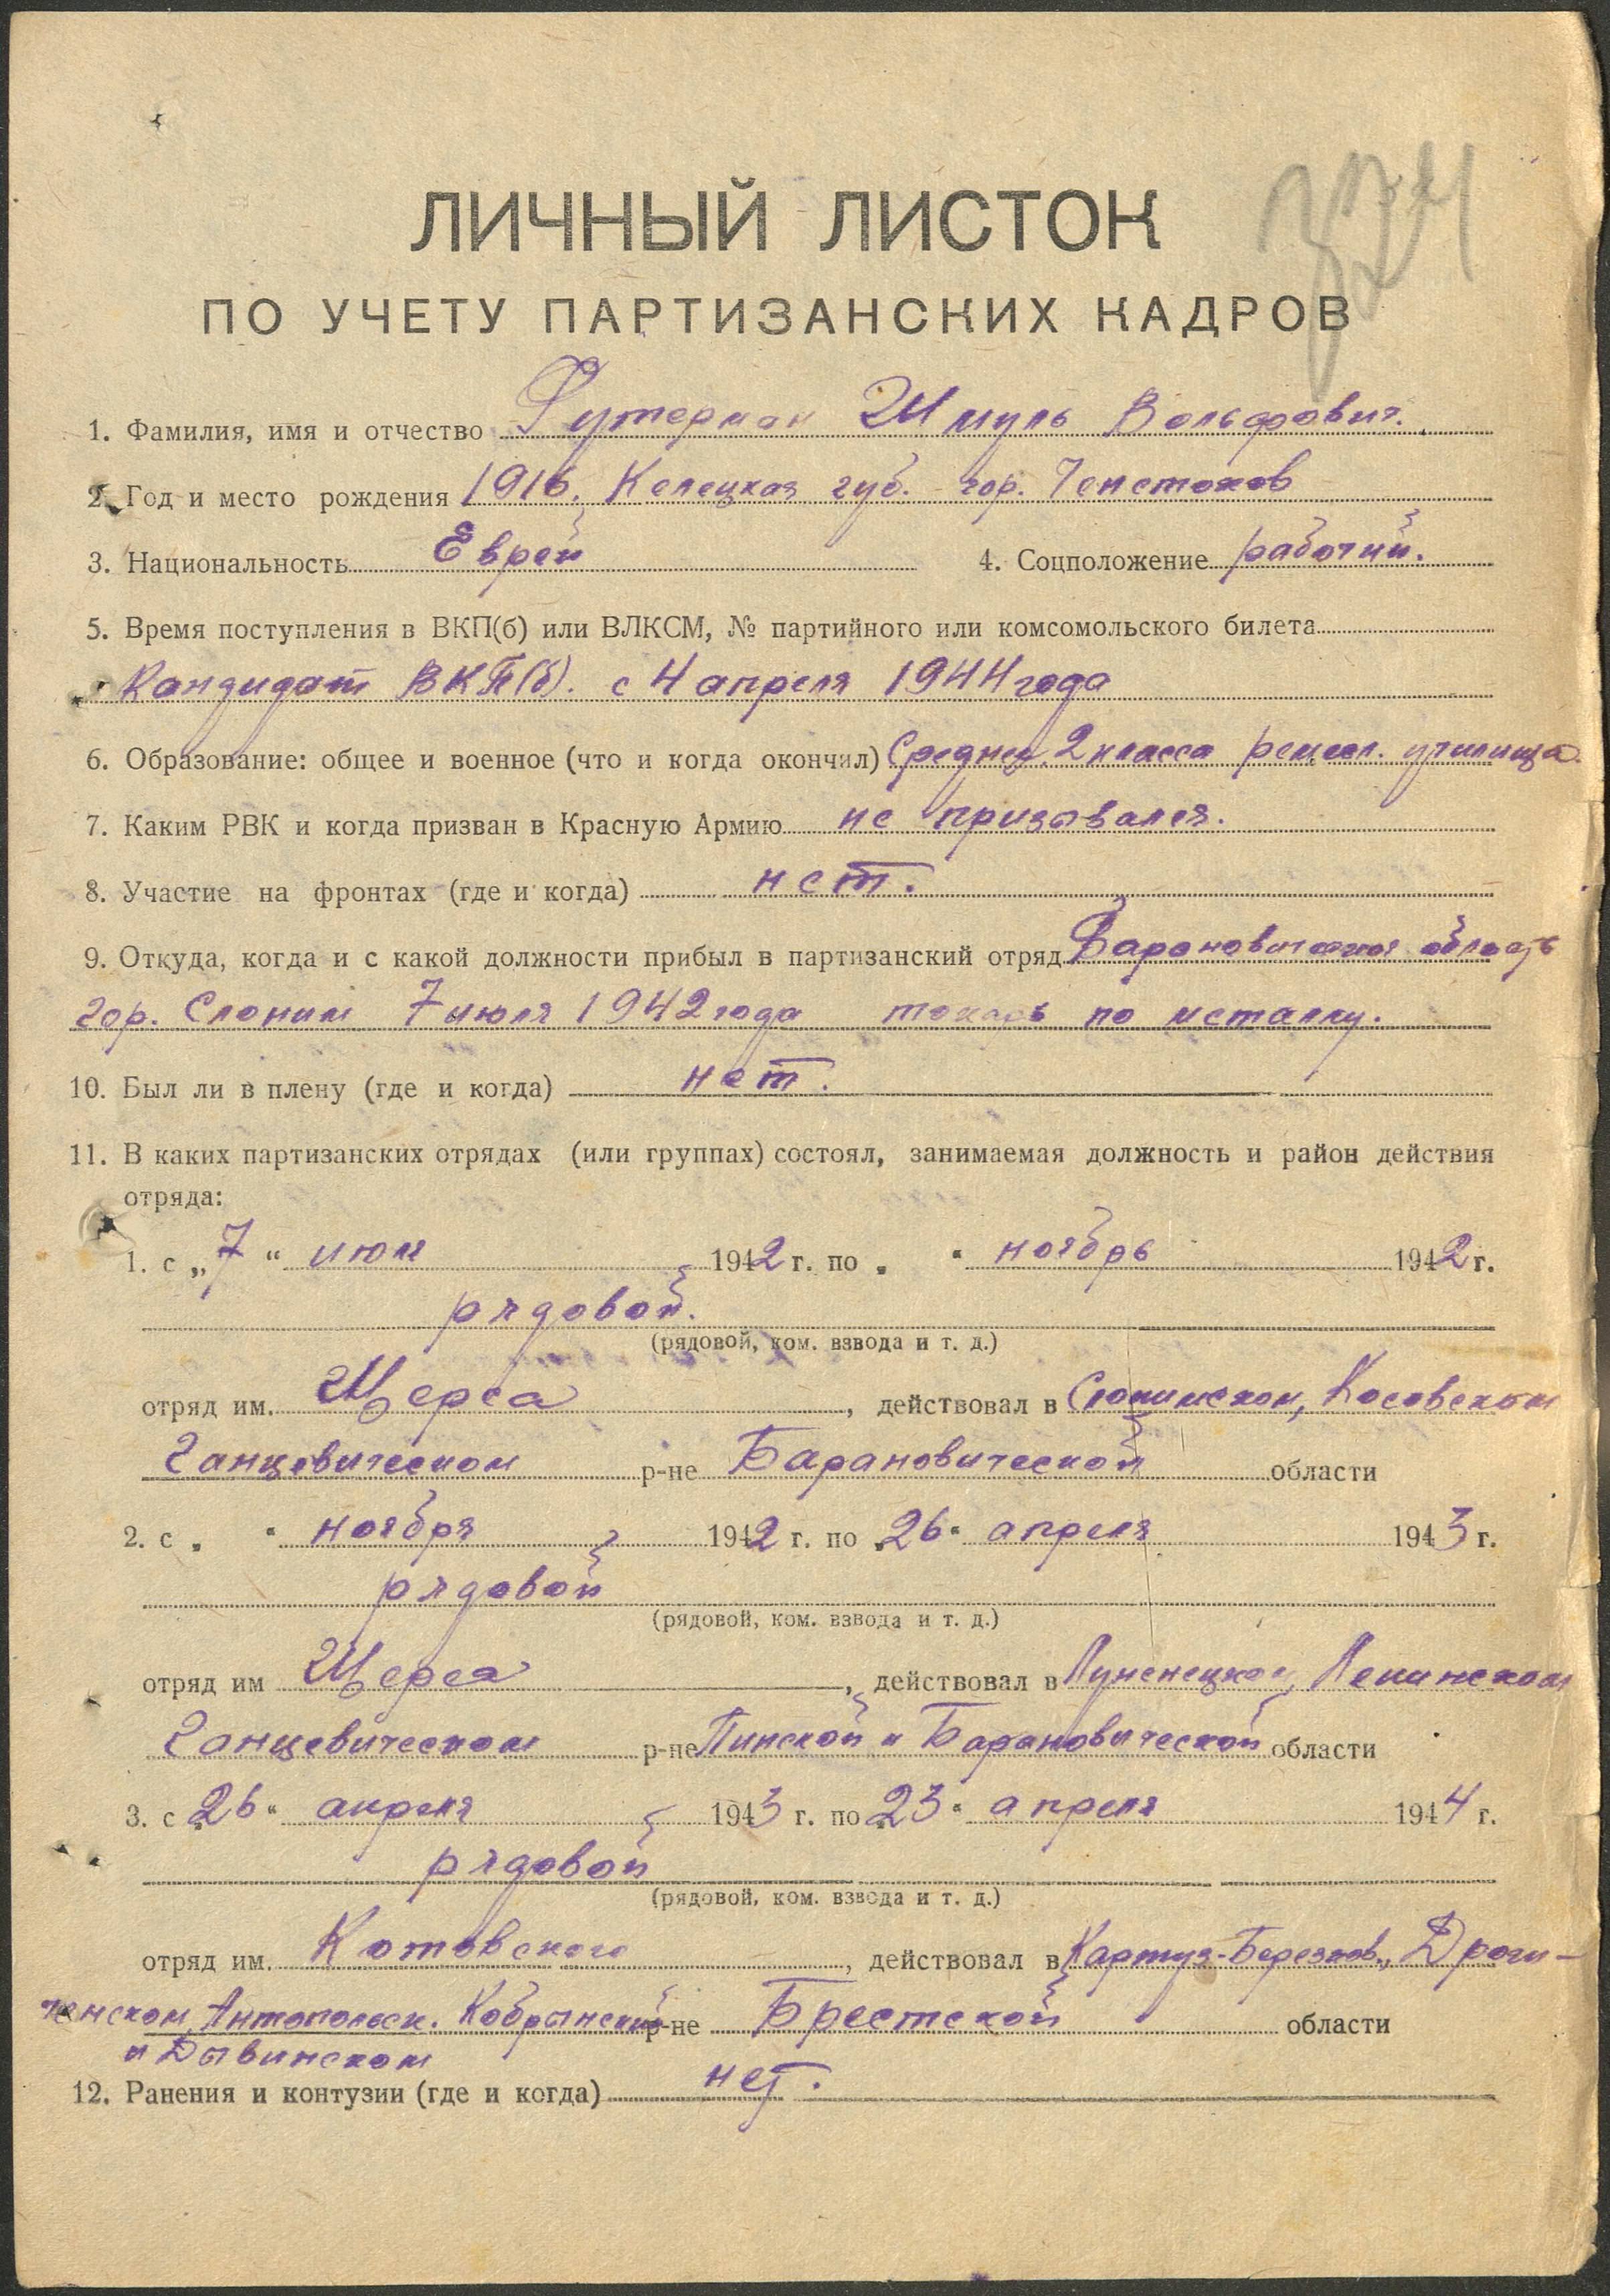 324
ЛИЧНЫЙ ЛИСТОК
ПО УЧЕТУ ПАРТИЗАНСКИХ КАДРОВ
1. Фамилия, имя и отчество Футерман Шмуль Вольфович.
2. Год и место рождения 1916. Келецкая губ. гор. Ченстохов
3. Национальность Еврей 4. Соцположение рабочий.
5. Время поступления в ВКП(б) или ВЛКСМ, № партийного или комсомольского билета
Кандидат ВКП(б). с 4 апреля 1944 года
6. Образование: общее и военное (что и когда окончил) Среднее, 2 класса ремесл. училища.
7. Каким РВК и когда призван в Красную Армию не призывался.
8. Участие на фронтах (где и когда) нет.
9. Откуда, когда и с какой должности прибыл в партизанский отряд Барановическая область
гор. Слоним 7 июля 1942 года токарь по металлу.
10. Был ли в плену (где и когда) нет.
11. В каких партизанских отрядах (или группах) состоял, занимаемая должность и район действия
отряда:
1. с „7“ июля 1942 г. по „ “ ноябрь 1942 г.
рядовой.
(рядовой, ком. взвода и т. д.)
отряд им. Щорса, действовал в Слонимском, Косовском
Ганцевическом р-не Барановической области
2. с „ “ ноября 1942 г. по „26“ апреля 1943 г.
рядовой
(рядовой, ком. взвода и т. д.)
отряд им Щорса, действовал в Лунинецком, Ленинском
Ганцевическом р-не Пинской и Барановической области
3. с „26“ апреля 1943 г. по „23“ апреля 1944 г.
рядовой
(рядовой, ком. взвода и т. д.)
отряд им. Котовского, действовал в Картуз-Березков., Дроги-
ченском, Антопольск. Кобрынский р-не Брестской области
и Дывинском
12. Ранения и контузии (где и когда) нет.